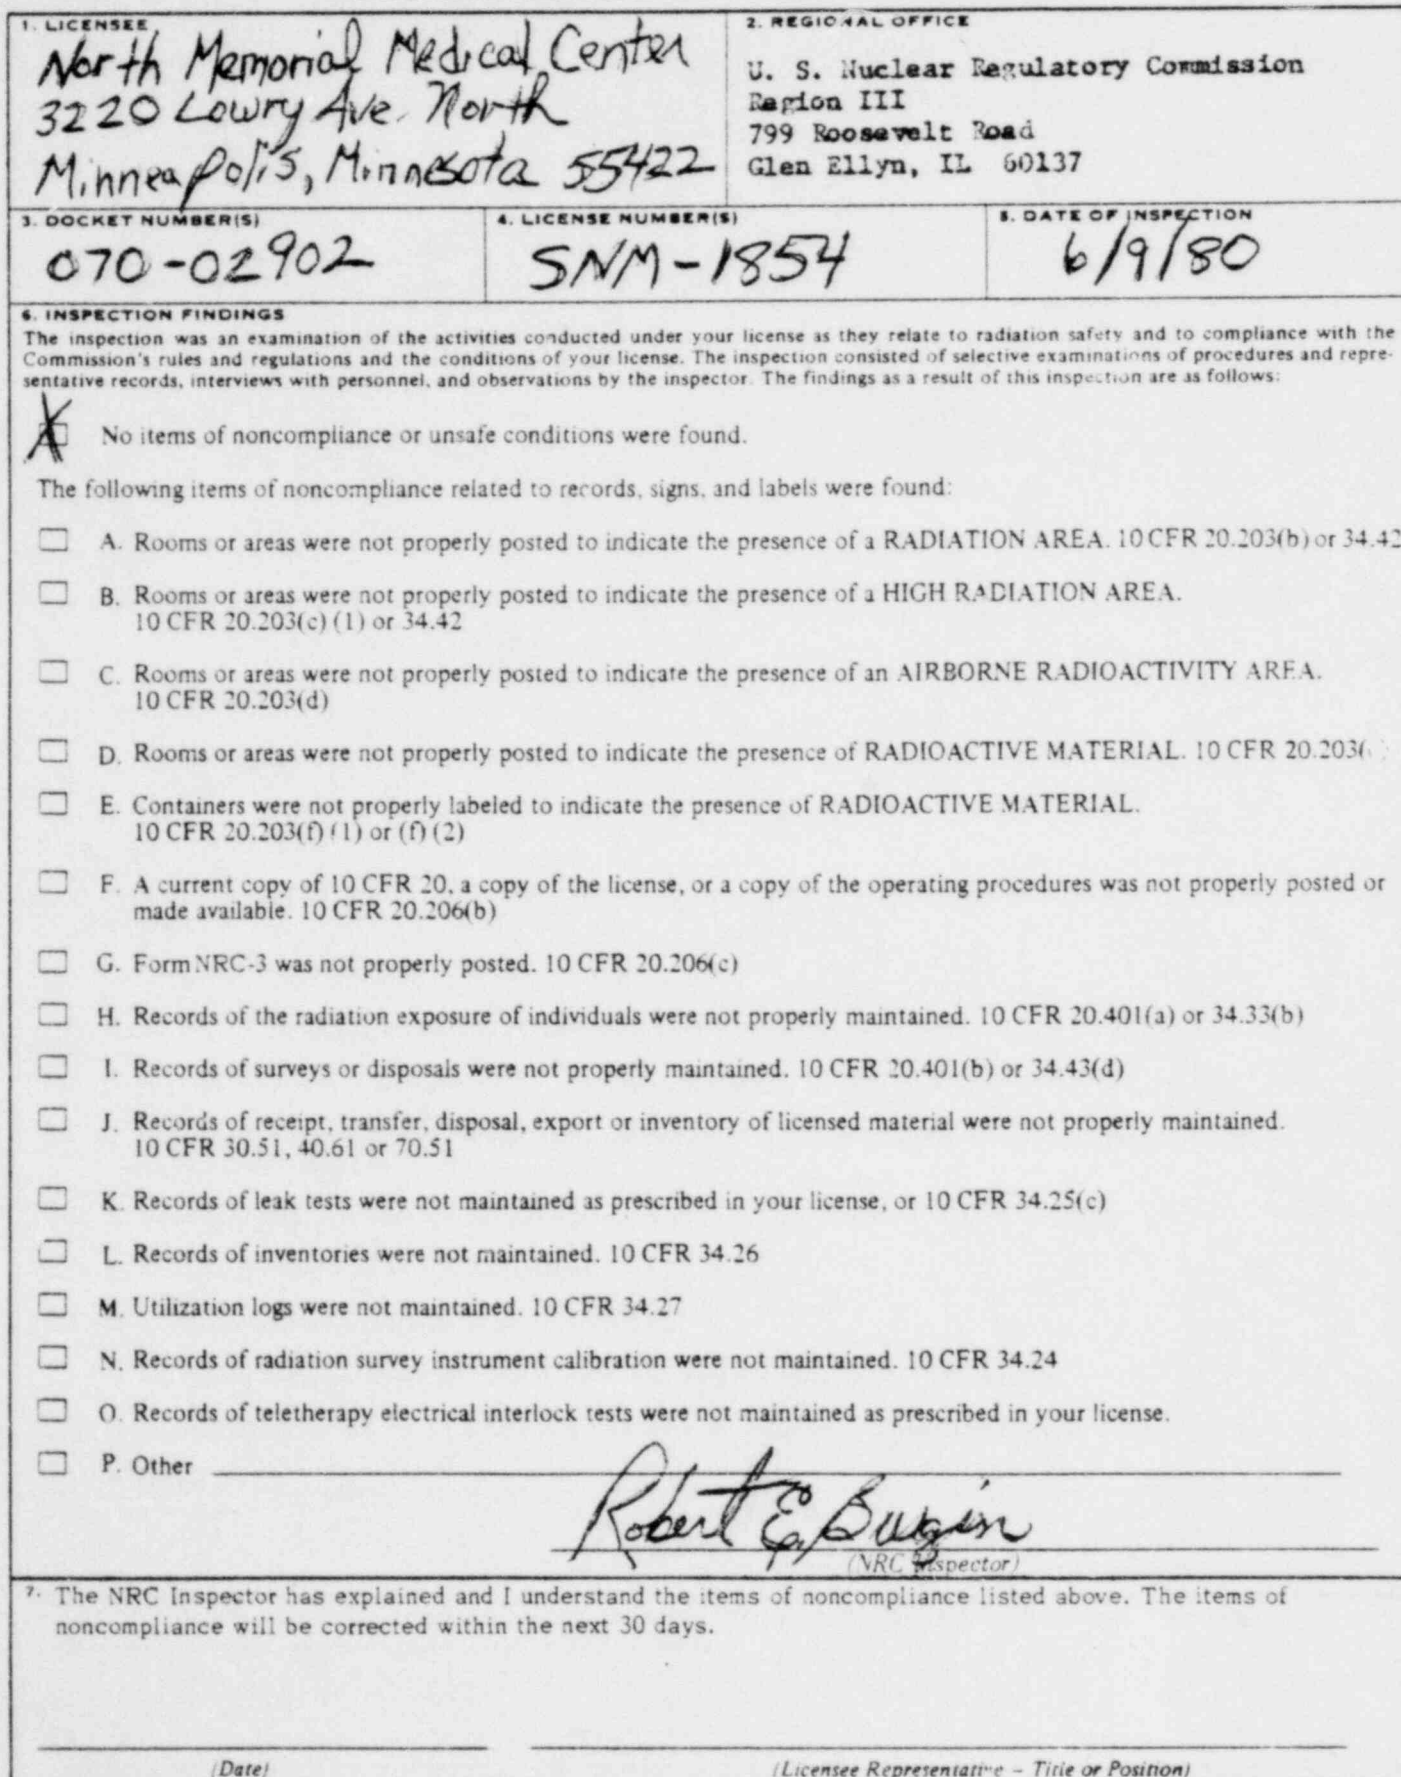 1. LICENSEE
North Memorial Medical Center
3220 Lowry Ave. North
Minneapolis, Minnesota 55422
2. REGIONAL OFFICE
U. S. Nuclear Regulatory Commission
Region III
799 Roosevelt Road
Glen Ellyn, IL 60137
3. DOCKET NUMBER(S)
070-02902
4. LICENSE NUMBER(S)
SNM-1854
5. DATE OF INSPECTION
6/9/80
6. INSPECTION FINDINGS
The inspection was an examination of the activities conducted under your license as they relate to radiation safety and to compliance with the
Commission's rules and regulations and the conditions of your license. The inspection consisted of selective examinations of procedures and repre-
sentative records, interviews with personnel, and observations by the inspector. The findings as a result of this inspection are as follows:
X No items of noncompliance or unsafe conditions were found.
The following items of noncompliance related to records, signs, and labels were found:
A. Rooms or areas were not properly posted to indicate the presence of a RADIATION AREA. 10 CFR 20.203(b) or 34.42
B. Rooms or areas were not properly posted to indicate the presence of a HIGH RADIATION AREA.
10 CFR 20.203(c) (1) or 34.42
C. Rooms or areas were not properly posted to indicate the presence of an AIRBORNE RADIOACTIVITY AREA.
10 CFR 20.203(d)
D. Rooms or areas were not properly posted to indicate the presence of RADIOACTIVE MATERIAL. 10 CFR 20.203(
E. Containers were not properly labeled to indicate the presence of RADIOACTIVE MATERIAL.
10 CFR 20.203(f) (1) or (f) (2)
F. A current copy of 10 CFR 20, a copy of the license, or a copy of the operating procedures was not properly posted or
made available. 10 CFR 20.206(b)
G. Form NRC-3 was not properly posted. 10 CFR 20.206(c)
H. Records of the radiation exposure of individuals were not properly maintained. 10 CFR 20.401(a) or 34.33(b)
I. Records of surveys or disposals were not properly maintained. 10 CFR 20.401(b) or 34.43(d)
J. Records of receipt, transfer, disposal, export or inventory of licensed material were not properly maintained.
10 CFR 30.51, 40.61 or 70.51
K. Records of leak tests were not maintained as prescribed in your license, or 10 CFR 34.25(c)
L. Records of inventories were not maintained. 10 CFR 34.26
M. Utilization logs were not maintained. 10 CFR 34.27
N. Records of radiation survey instrument calibration were not maintained. 10 CFR 34.24
O. Records of teletherapy electrical interlock tests were not maintained as prescribed in your license.
P. Other
Robert E.
(NRC Inspector)
7. The NRC Inspector has explained and I understand the items of noncompliance listed above. The items of
noncompliance will be corrected within the next 30 days.
(Date)
(Licensee Representative – Title or Position)